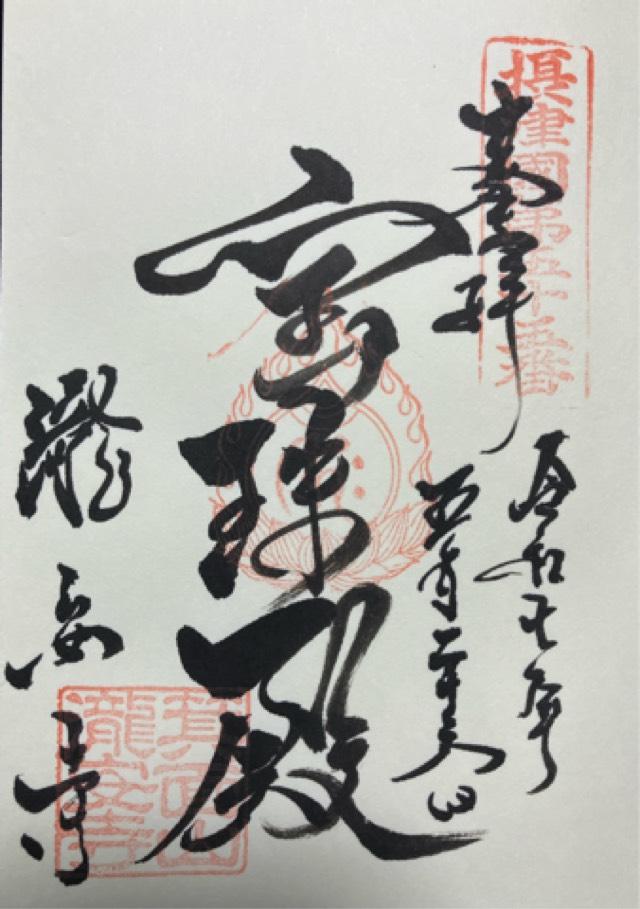 摂津國第五十五番
奉拝
令和七年
五月二十六日
宝珠殿
瀧安寺
箕面山
瀧安寺